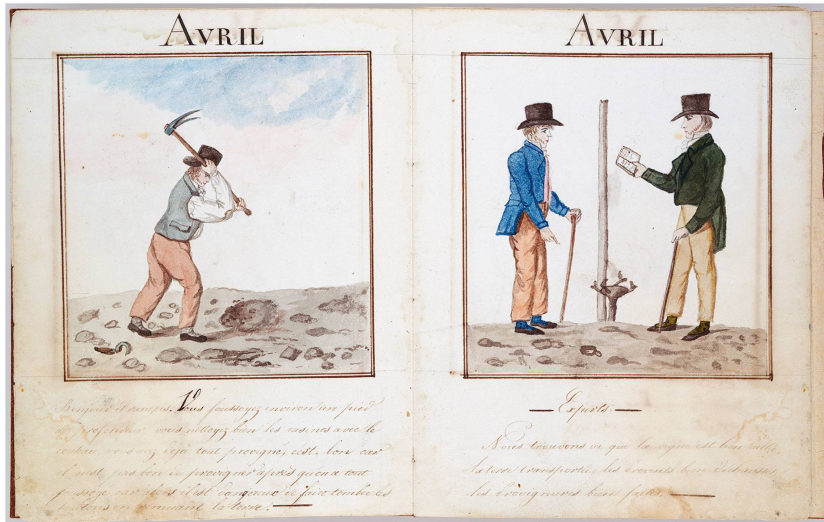 AVRIL
Bonjour Vous fossoyez environ un pied
profondeur vous nettoyez bien les racines avec le
couteau, vous avez déjà tout provigné, c'est bon car
il n'est pas bon de provigner après qu'on a tout
fossoyé car alors il est dangereux de faire tomber les
boutons en remuant la terre.
AVRIL
Experts.
Nous trouvons ici que la vigne est bien taillée,
la terre transportée, les bien
les bien faites.